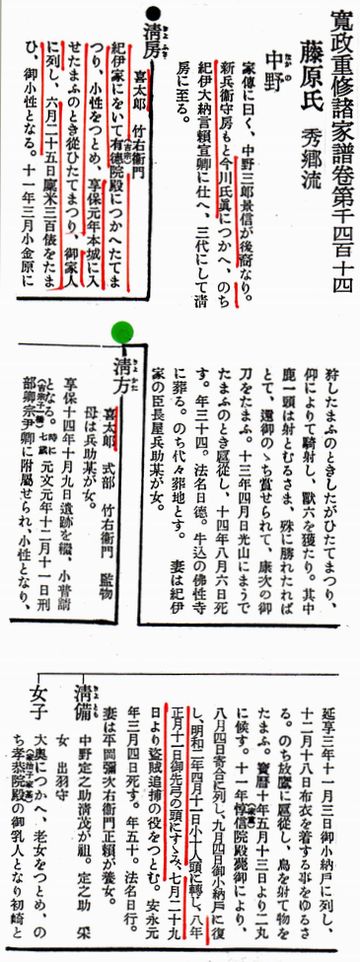 寬政重修諸家譜卷第千四百十四
藤原氏 秀郷流
中野
家傳に曰く、中野三郎景信が後裔なり。
新兵衛守房もと今川氏眞につかへ、のち
紀伊大納言賴宣卿に仕へ、三代にして淸
房に至る。
淸房
喜太郎 竹右衛門
紀伊家にをいて有德院殿につかへたてま
つり、小性をつとめ、享保元年本城に入
せたまふのとき從ひたてまつり、御家人
に列し、六月二十五日廩米三百俵をたま
ひ、御小性となる。十一年三月小金原に
狩したまふのときしたがひたてまつり、
仰により騎射し、獸六を獲たり。其中
鹿一頭は射とむるさま、殊に勝れたれば
とて、還御のゝち賞せられて、康次の御
刀をたまふ。十三年四月日光山にまうで
たまふのとき扈從し、十四年八月六日死
す。年三十四。法名日德。牛込の佛性寺
に葬る。のち代々葬地とす。 妻は紀伊
家の臣長屋兵助某が女。
淸方
喜太郎 式部 竹右衛門 監物
母は兵助某が女。
享保十四年十月九日遺跡を繼、小普請
となる。時に七歲 元文元年十二月十一日刑
部卿宗尹卿に附屬せられ、小性となり、
延享三年十一月三日御小納戸に列し、
十二月十八日布衣を着する事をゆるさ
る。のち放鷹に扈從し、鳥を射て物を
たまふ。寶曆十年五月十三日より二丸
に候す。十一年惇信院殿薨御により、
八月四日寄合に列し、九月四日御小納戸に復
し、明和二年四月十一日小十人頭に轉じ、八年
正月十一日御先弓の頭にすゝみ、七月二十九
日より盜賊追捕の役をつとむ。安永元
年三月四日死す。年五十。法名日行。
妻は平岡彌次右衛門正賴が養女。
淸備
中野定之助淸茂が祖。定之助 采
女 出羽守
女子
大奧につかへ、老女をつとめ、の
ち孝恭院殿の御乳人となり初崎と